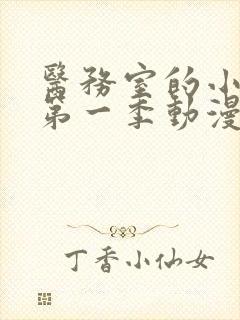 醫務室的小
第一季動漫
丁香小仙女